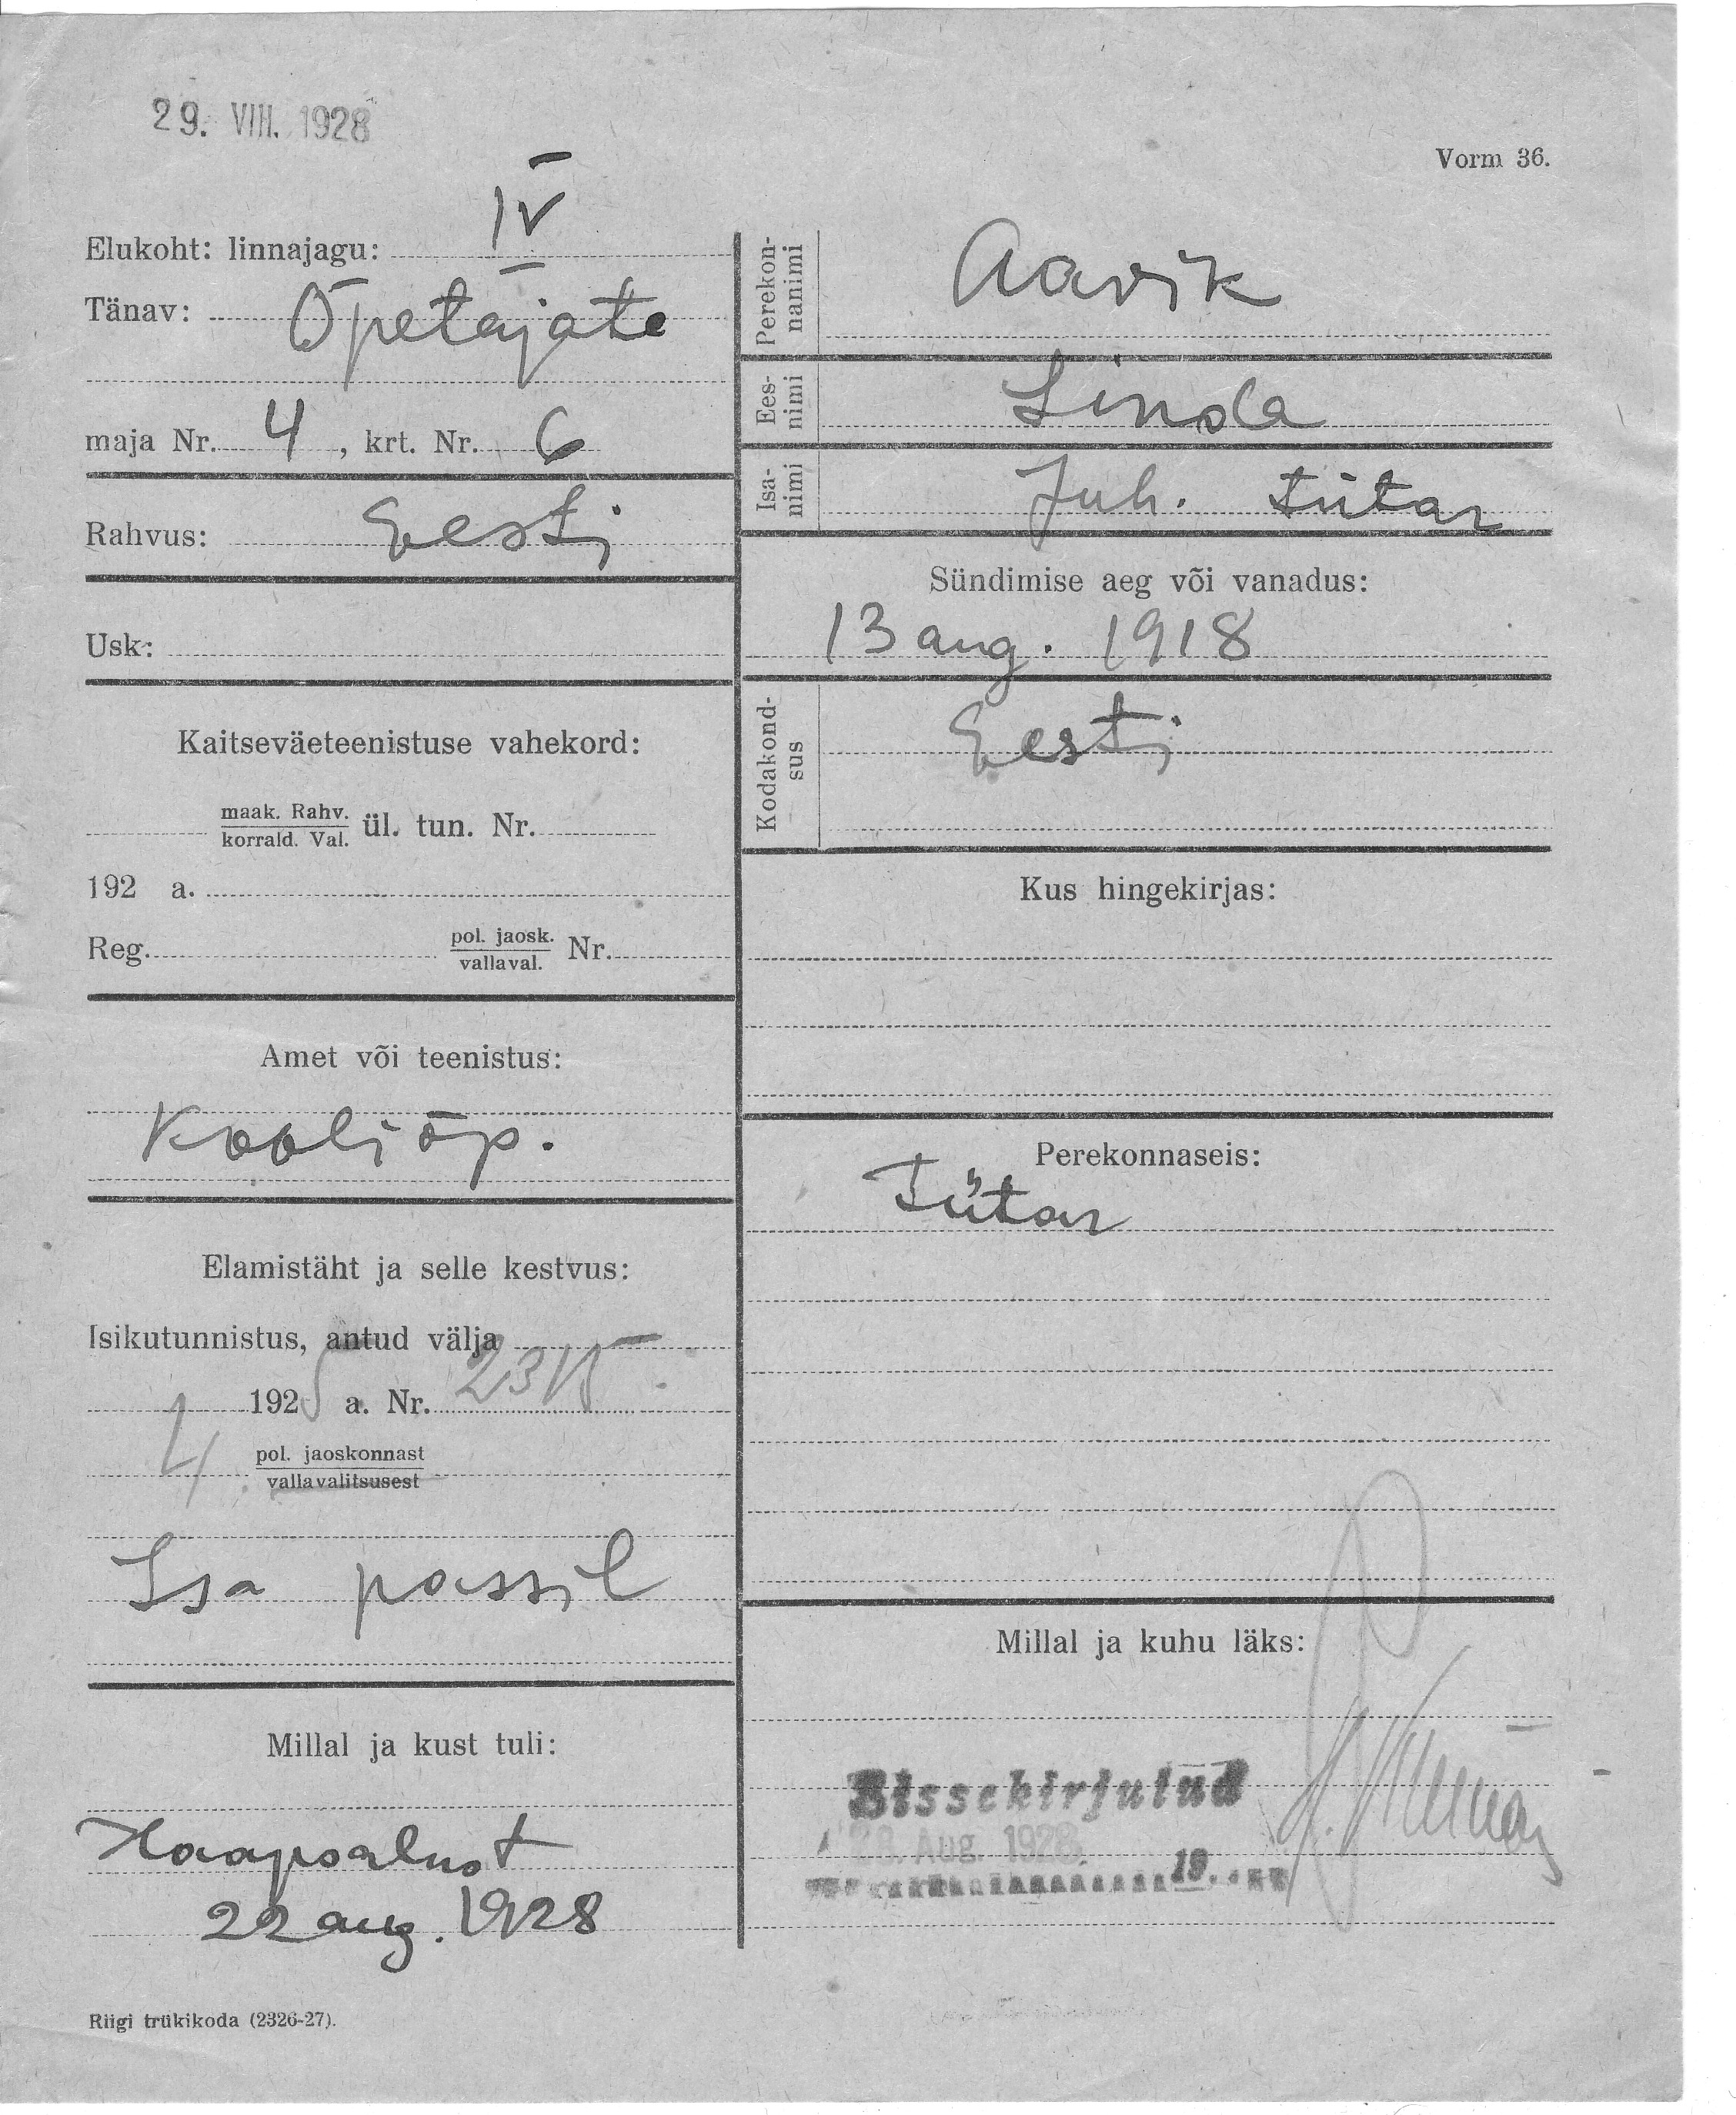 29. VIII. 1928
Vorm 36.
Elukoht: linnajagu: IV
Tänav: Õpetajate
maja Nr. 4, krt. Nr. 6
Rahvus: Eesti
Usk:
Kaitseväeteenistuse vahekord:
maak. Rahv.
korrald. Val. ül. tun. Nr.
192 a.
Reg. pol. jaosk.
vallaval. Nr.
Amet või teenistus:
Kooliõp.
Elamistäht ja selle kestvus:
Isikutunnistus, antud välja
192 a. Nr.
4 pol. jaoskonnast
vallavalitsusest
Isa passil
Millal ja kust tuli:
Haapsalust
22 aug. 1928
Riigi trükikoda (2326-27).
Perekon-
nanimi
Aavik
Ees-
nimi
Linda
Isa-
nimi
Juh. tütar
Sündimise aeg või vanadus:
13 aug. 1918
Kodakond-
sus
Eesti
Kus hingekirjas:
Perekonnaseis:
Tütar
Millal ja kuhu läks:
Sissekirjutud
28. Aug. 1928
19